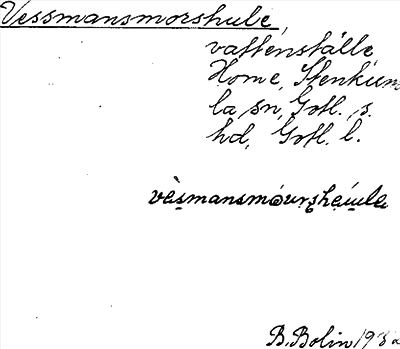 Vessmansmorshule,
vattenställe
Home, Stenkum
la sn, Gotl. s.
hd, Gotl. l.
vèsmansmóurshǫ́ula
B. Bolin 193